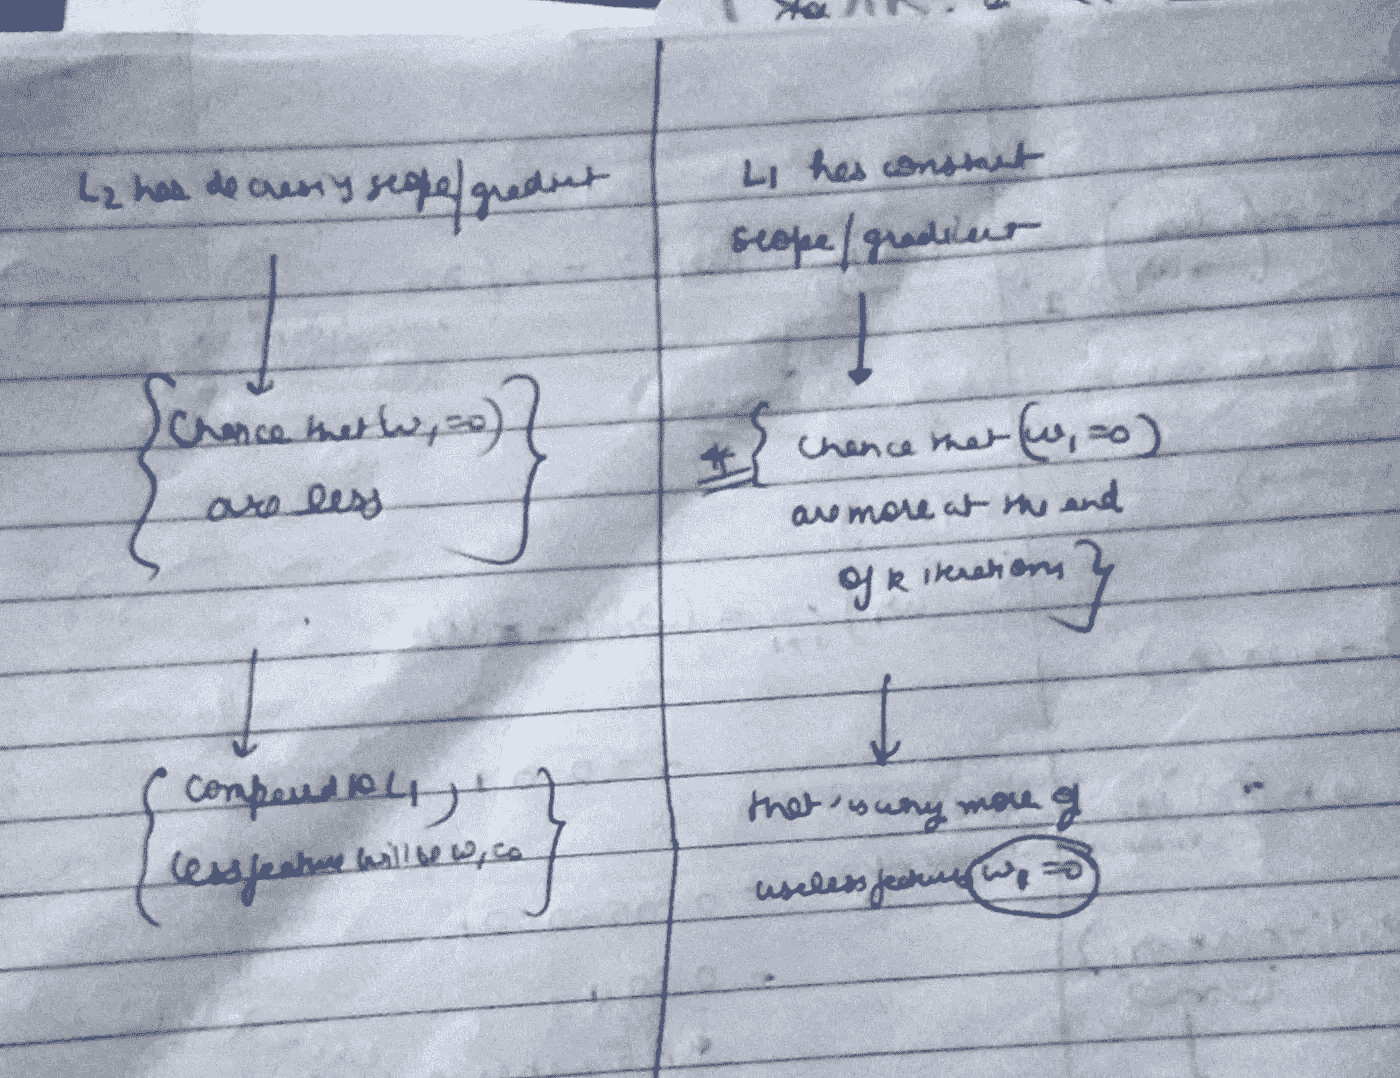 L2 has decreasing scope/gradient
Chance that (w1=0)
are less
Compared to L1,
less feature will be w1=0
L1 has constant
scope/gradient
* Chance that (w1=0)
are more at the end
of k iterations
that's why more of
useless features w1=0